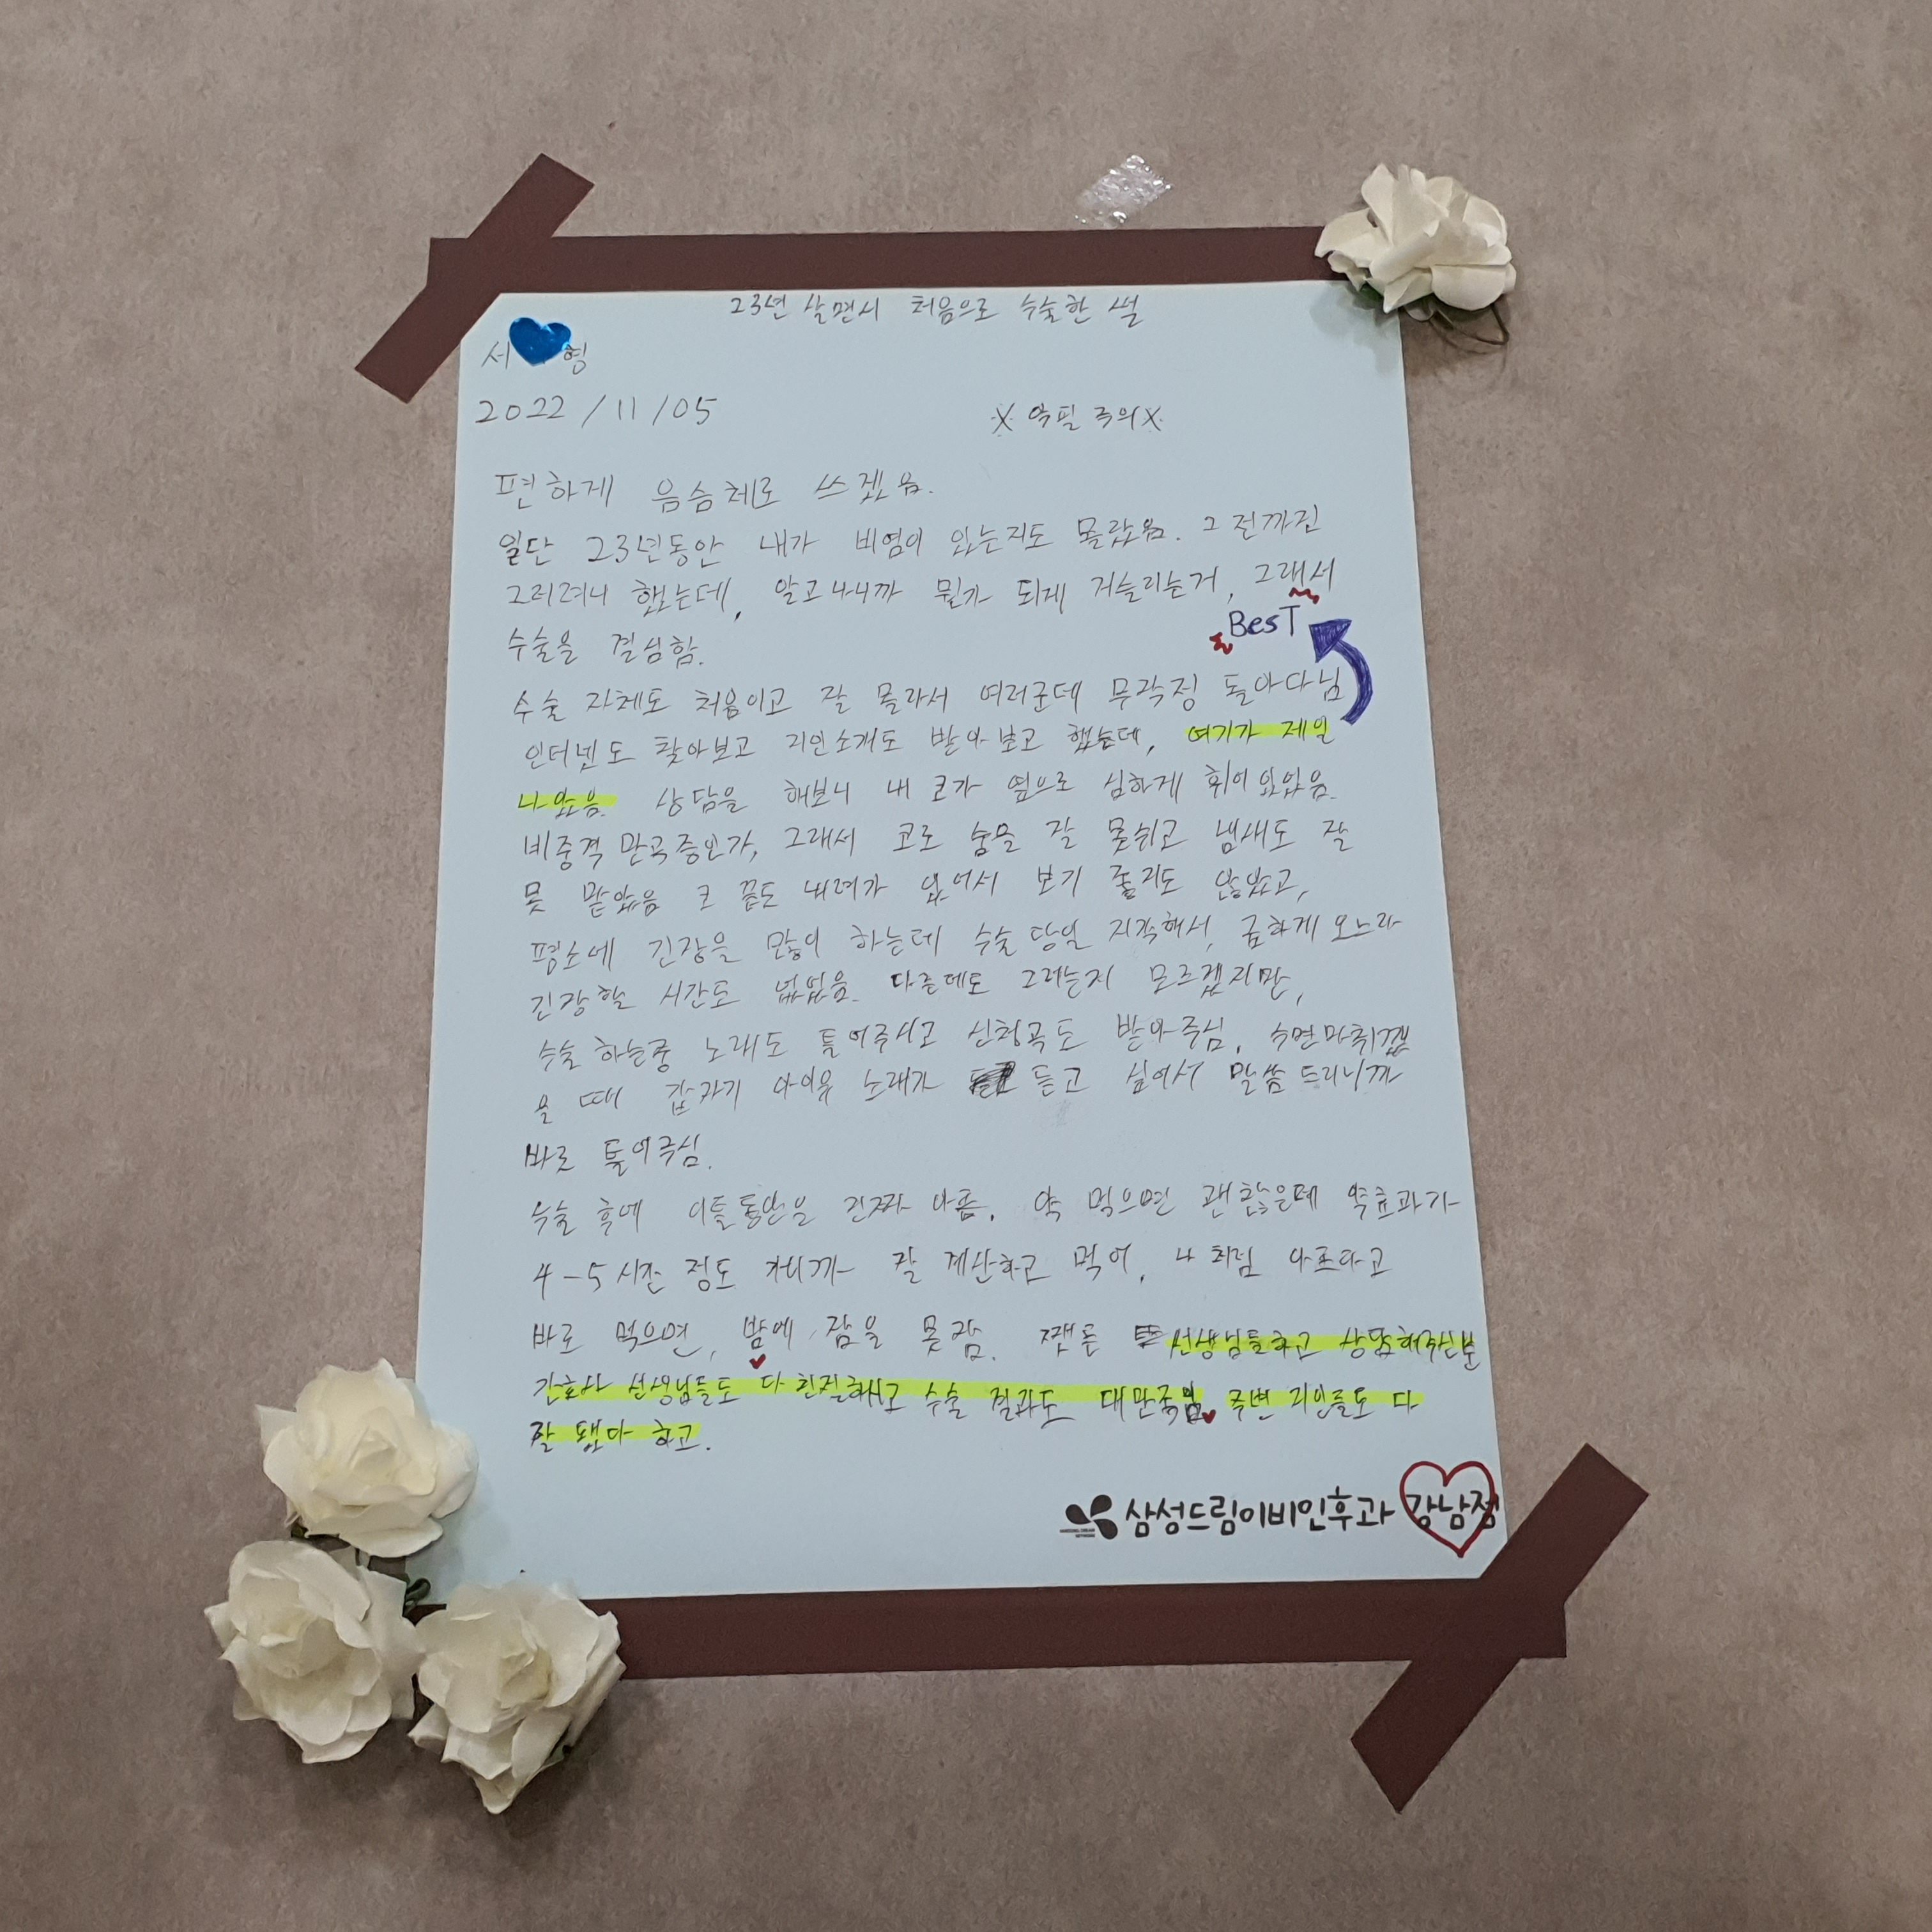 23년 살면서 처음으로 수술한 썰
서 형
2022/11/05
※ 악필 주의※
편하게 음슴체로 쓰겠음.
일단 23년동안 내가 비염이 있는지도 몰랐음. 그 전까진
그러려니 했는데, 알고나니까 뭔가 되게 거슬리는거, 그래서
수술을 결심함.
BesT
수술 자체도 처음이고 잘 몰라서 여러군데 무작정 돌아다님
인터넷도 찾아보고 지인소개도 받아보고 했는데, 여기가 제일
나았음. 상담을 해보니 내 코가 옆으로 심하게 휘어있었음.
비중격 만곡증인가, 그래서 코로 숨을 잘 못쉬고 냄새도 잘
못 맡았음 코 끝도 내려가 있어서 보기 좋지도 않았고,
평소에 긴장을 많이 하는데 수술 당일 지각해서, 급하게 오느라
긴장할 시간도 없었음. 다른데도 그러는지 모르겠지만,
수술 하는중 노래도 틀어주시고 신청곡도 받아주님, 수면마취깼
을 때 갑자기 아이유 노래가 듣고 싶어서 말씀 드리니까
바로 틀어주심.
수술 후에 이틀동안은 진짜 아픔. 약 먹으면 괜찮은데 약효과가
4-5시간 정도 가니까 잘 계산하고 먹어, 나 처럼 아프다고
바로 먹으면, 밤에 잠을 못잠. 쨋든 선생님들하고 상담해주신분
간호사 선생님들도 다 친절하시고 수술 결과도 대만족임, 주변 지인들도 다
잘 됐다 하고.
삼성드림이비인후과 강남점